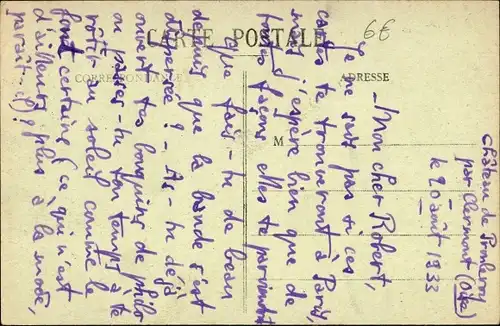 6€
CARTE POSTALE
CORRESPONDANCE
ADRESSE
M
Château de
par Clermont (Oise)
le 20 août 1933
- Mon cher Robert,
Je ne sais pas si ces
cartes te trouveront à Paris,
mais j'espère bien que de
toutes façons elles te parviendront
Que fais-tu de beau
depuis que la bande s'est
dispersée ? - As-tu déjà
ouvert tes bouquins de philo
ou passes-tu ton temps à te
rôtir au soleil comme le
font certains (ce qui n'est
d'ailleurs plus à la mode,
paraît-il) ?